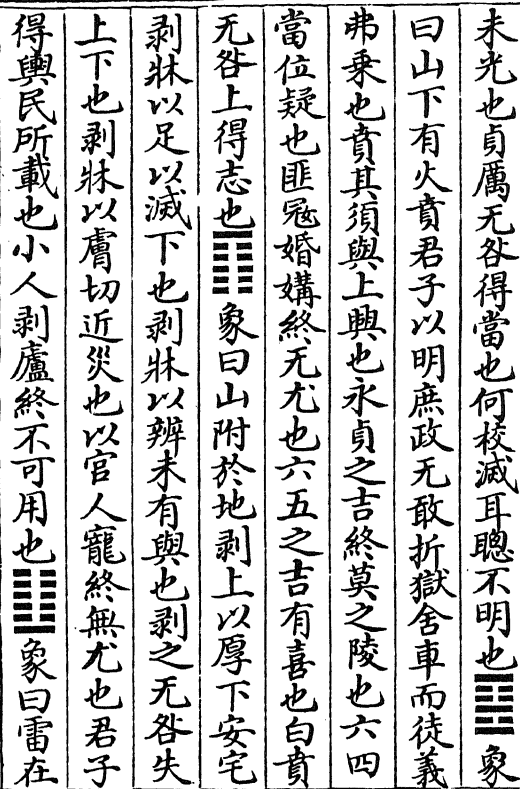 未光也貞厲无咎得當也何校滅耳聰不明也䷕象
曰山下有火賁君子以明庶政无敢折獄舍車而徒義
弗乗也賁其須與上興也永貞之吉終莫之陵也六四
當位疑也匪冦婚媾終无尤也六五之吉有喜也白賁
无咎上得志也䷖象曰山附於地剥上以厚下安宅
剥牀以足以滅下也剥牀以辨未有與也剥之无咎失
上下也剥牀以膚切近災也以官人寵終無尤也君子
得輿民所載也小人剥廬終不可用也䷗象曰雷在